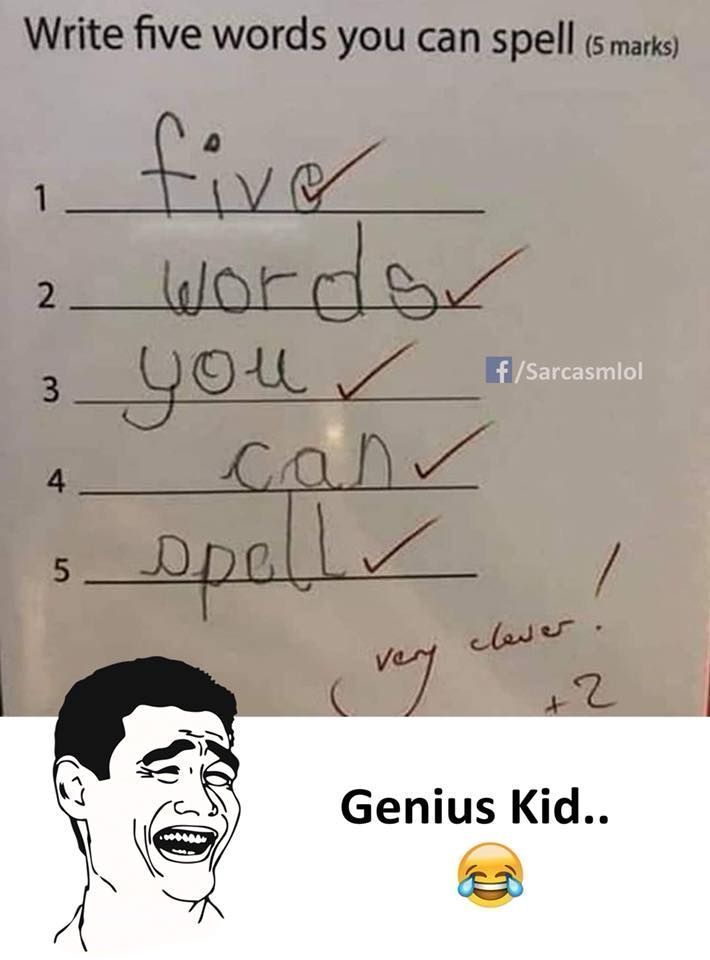 Write five words you can spell (5 marks)
1 five
2 words
3 you
f/Sarcasmlol
4 can
5 spell
very clever!
+2
Genius Kid..